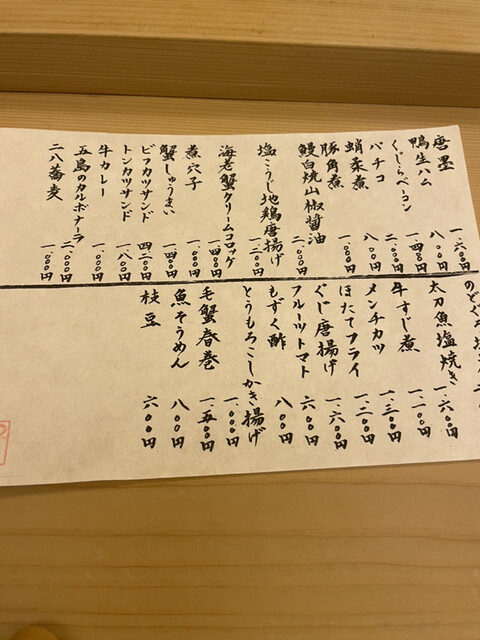 唐墨 一.六〇〇円
鴨生ハム 一.四〇〇円
くじらベーコン 二.〇〇〇円
バチコ 八〇〇円
蛸柔煮 一.〇〇〇円
豚角煮
鰻白焼山椒醤油 二.〇〇〇円
塩こうじ地鶏唐揚げ 一.二〇〇円
海老蟹クリームコロッケ 一.四〇〇円
煮穴子 一.〇〇〇円
蟹しゅうまい 一.四〇〇円
ビフカツサンド 四.二〇〇円
トンカツサンド 一.八〇〇円
牛カレー 一.〇〇〇円
五島のカルボナーラ 二.〇〇〇円
二八蕎麦 一.〇〇〇円
のどぐろ塩
太刀魚塩焼き 一.六〇〇円
牛すじ煮 一.一〇〇円
メンチカツ 一.三〇〇円
ほたてフライ 一.二〇〇円
ぐじ唐揚げ 一.六〇〇円
フルーツトマト 六〇〇円
もずく酢 八〇〇円
とうもろこしかき揚げ 一.〇〇〇円
毛蟹春巻 一.五〇〇円
魚そうめん 八〇〇円
枝豆 六〇〇円